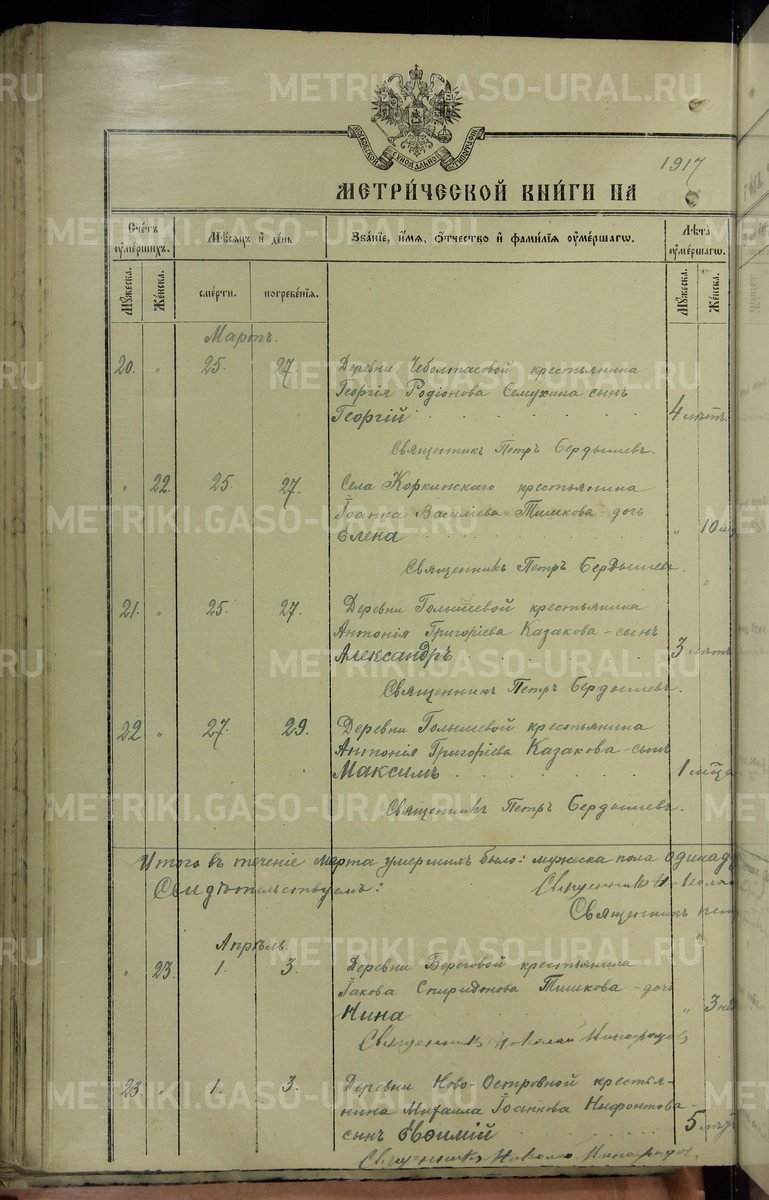 METRIKI.GASO-URAL.RU
МОСКОВСКОЙ СѴНОДАЛЬНОЙ ТИПОГРАФІИ
1917
МЕТРИ́ЧЕСКОЙ КНИ́ГИ НА
Сче́тъ оуме́ршихъ.
Мѣ́сяцъ и҆ де́нь
Зва́нїе, и҆́мя, ѻ҆́тчество и҆ фами́лїя оуме́ршагѡ.
Лѣ́та оуме́ршагѡ.
Мꙋ́жеска.
Же́нска.
сме́рти.
погребе́нїя.
Мꙋ́жеска.
Же́нска.
Мартъ.
20. " 25. 27. Деревни Чеболтасовой крестьянина
Георгія Родіонова Семухина сынъ
Георгій 4 лѣтъ.
Священникъ Петръ Бердышевъ.
" 22. 25. 27. Села Коркинскаго крестьянина
Іоанна Василіева Тишкова дочь
Елена " 10
Священникъ Петръ Бердышевъ.
21. " 25. 27. Деревни Голышевой крестьянина
Антонія Григоріева Казакова - сынъ
Александръ 3 лѣтъ
Священникъ Петръ Бердышевъ.
22 " 27. 29. Деревни Голышевой крестьянина
Антонія Григоріева Казакова - сынъ
Максимъ 1
Священникъ Петръ Бердышевъ.
Итого въ теченіе марта умершихъ было: мужеска пола одинад
Свидѣтельствуемъ: Священникъ Никола
Священникъ Пет
Апрѣль.
" 23. 1. 3. Деревни Береговой крестьянина
Іакова Спиридонова Тишкова - дочь
Нина " 3
Священникъ Николай
23. " 1. 3. Деревни Ново-Островной крестья-
нина Михаила Іоаннова Нифонтова -
сынъ Евѳимій 5
Священникъ Николай